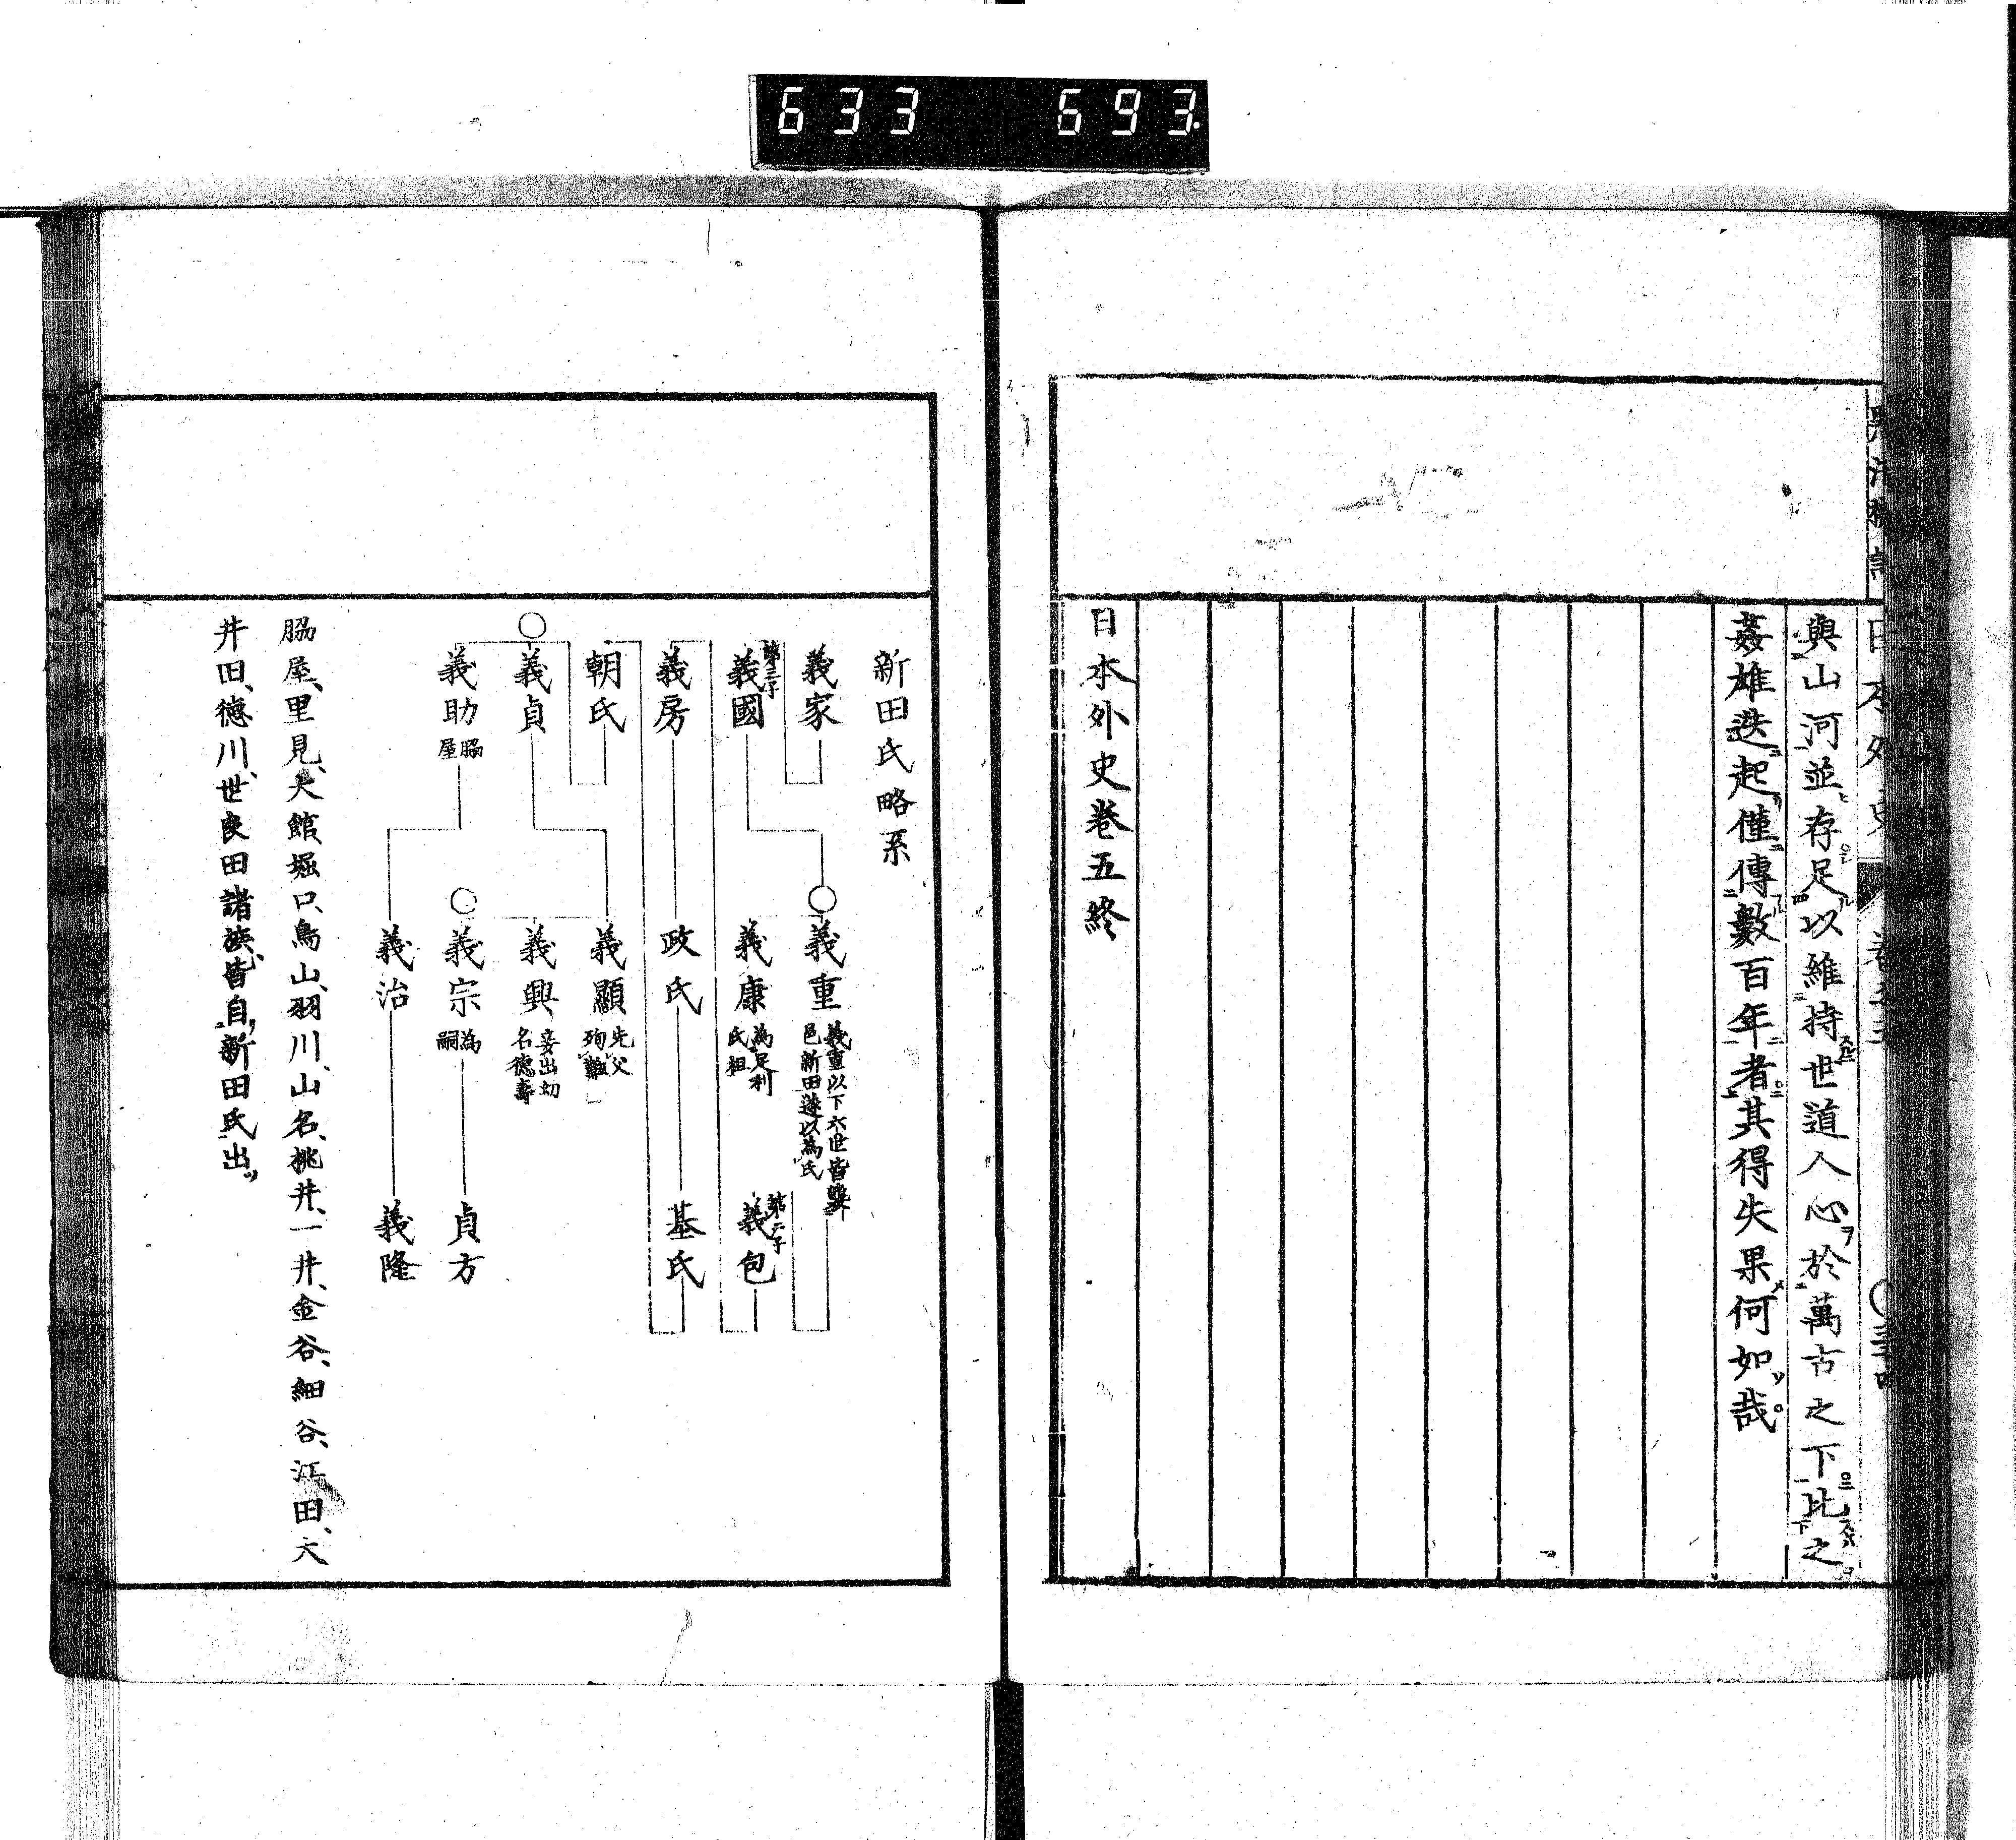 633 693
與山河並存足以維持世道人心於萬古之下比之
姦雄迭起僅傳數百年者其得失果何如哉
日本外史卷五終
新田氏略系
義家
義國
第三子
義重
義重以下六世皆襲
邑新田遂以為氏
義康
為足利
氏祖
義包
第二子
義房
政氏
基氏
朝氏
義貞
義助
脇
屋
義顯
先父
殉難
義興
妾出幼
名德壽
義宗
為
嗣
貞方
義治
義隆
脇屋、里見、大館、堀口、鳥山、羽川、山名、桃井、一井、金谷、細谷、江田、大
井田、德川、世良田諸族、皆自新田氏出、